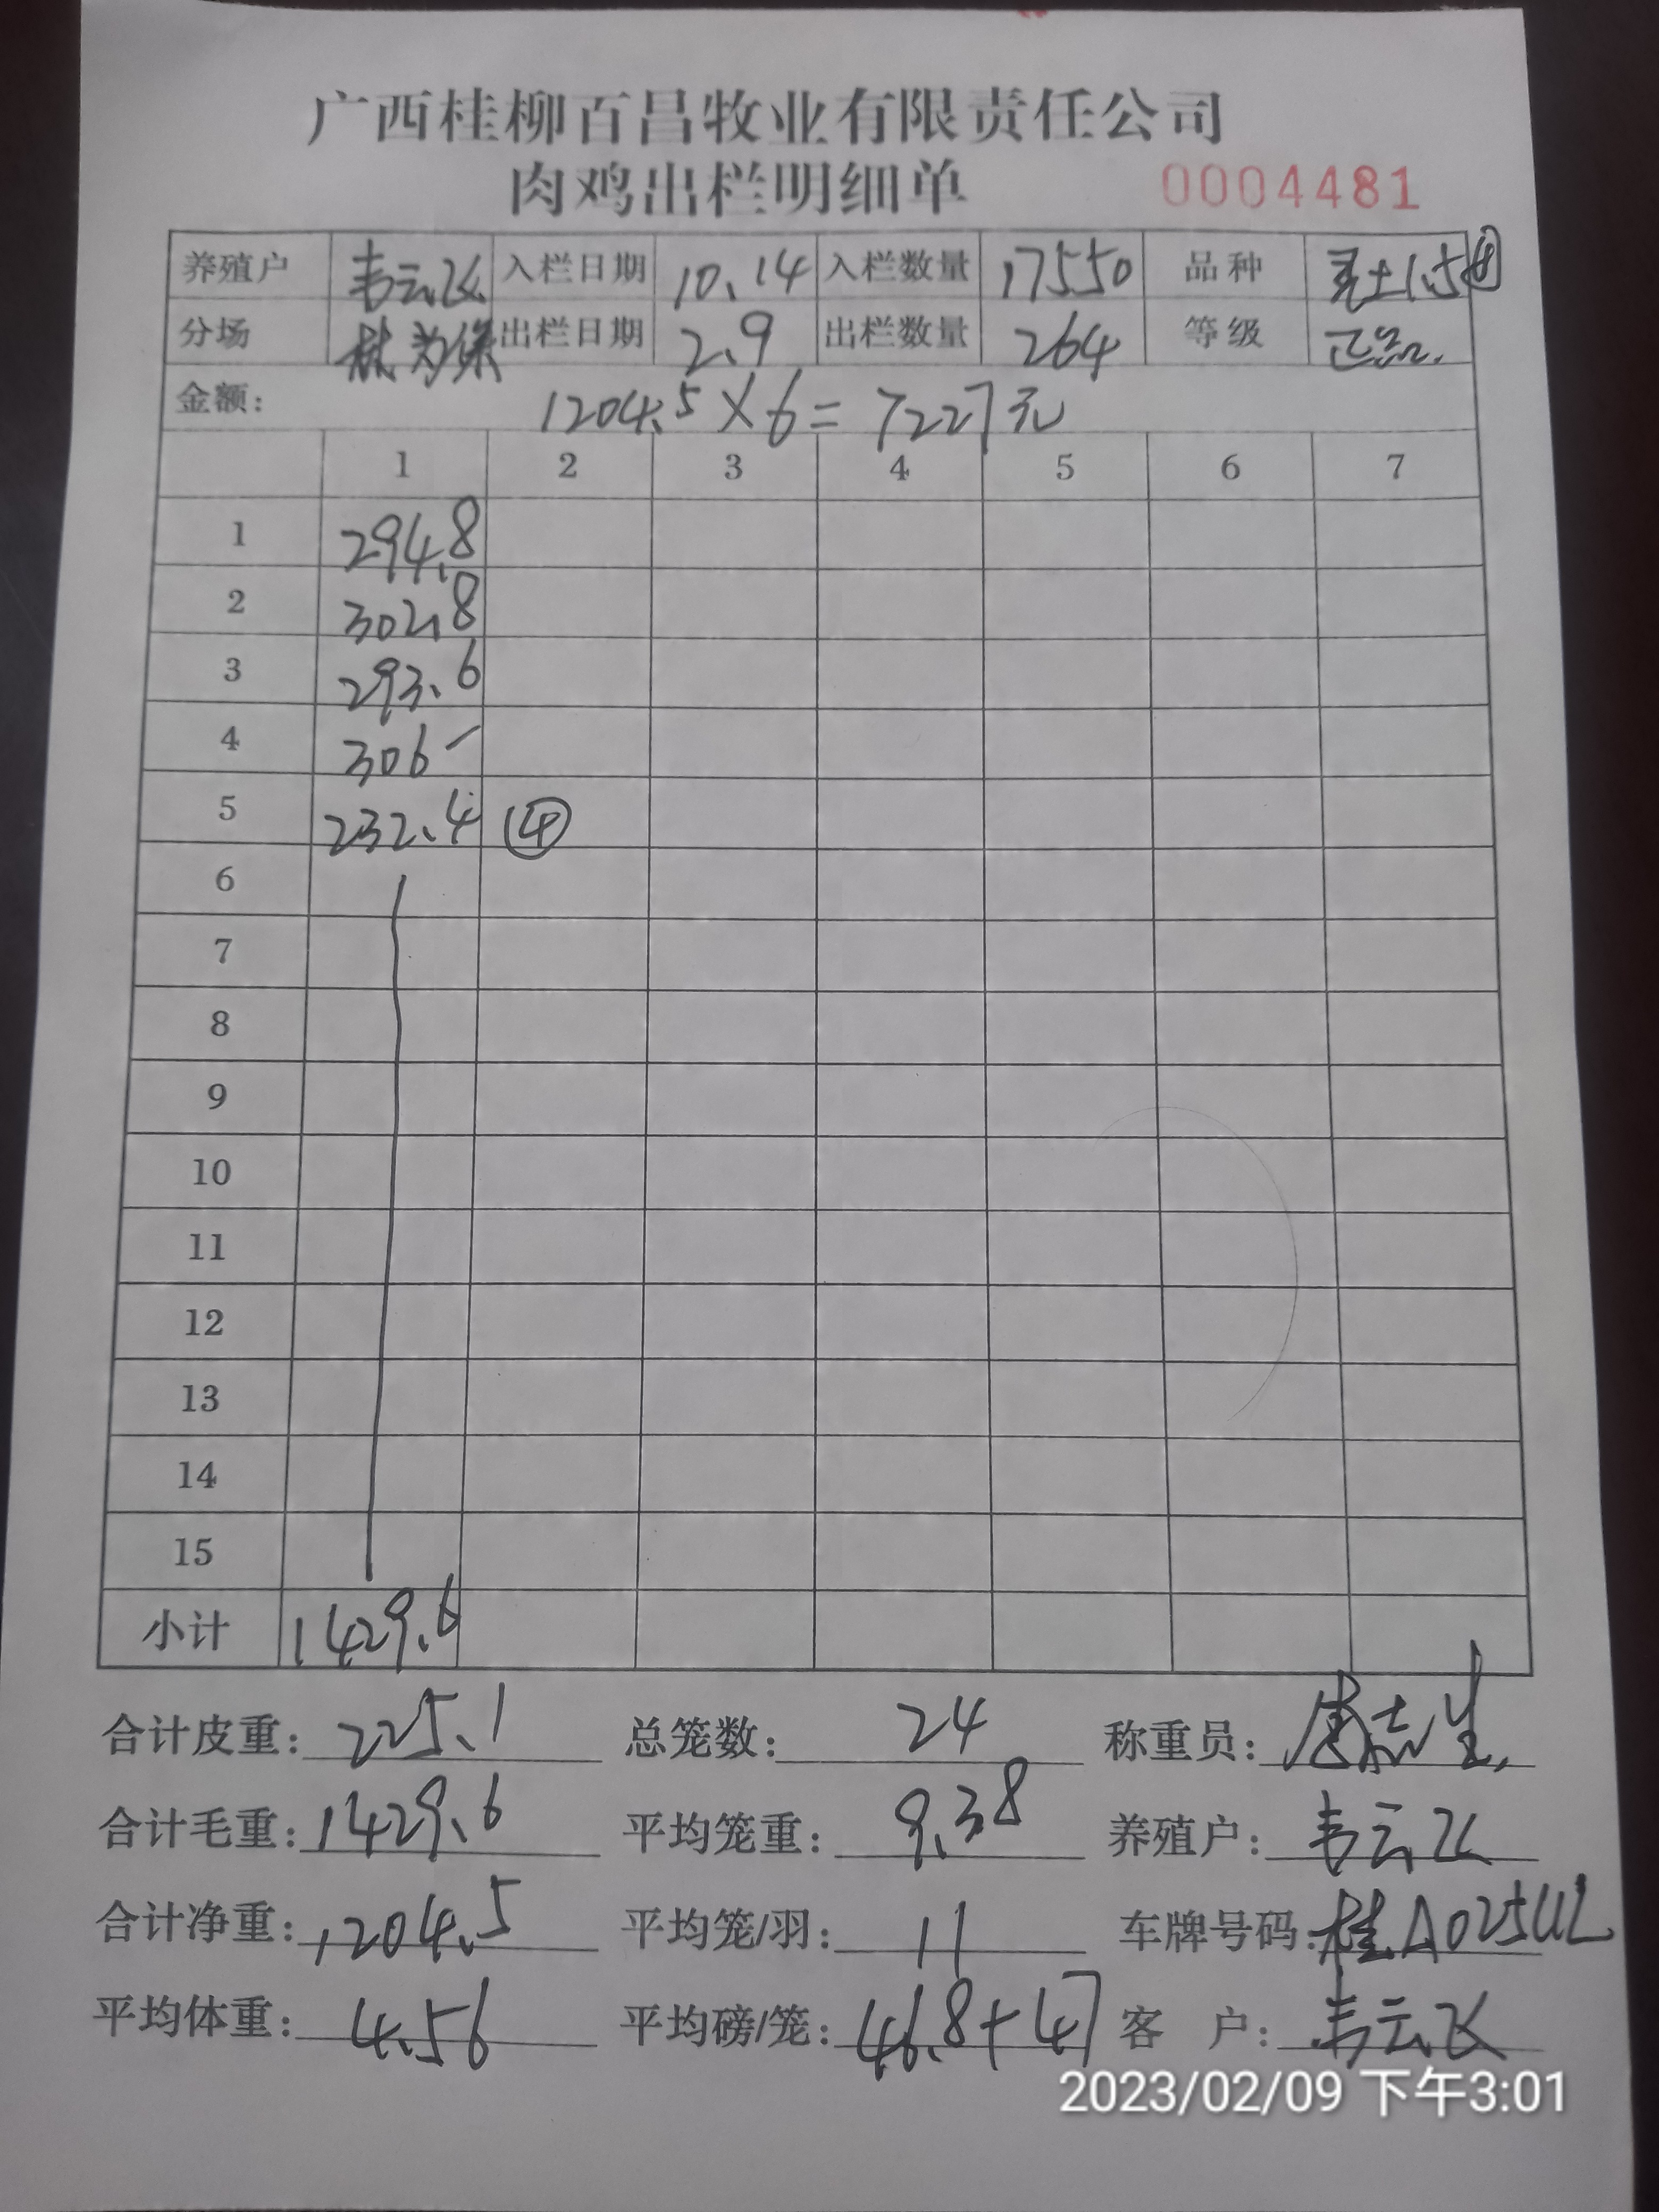 广西桂柳百昌牧业有限责任公司
肉鸡出栏明细单 0004481
养殖户 韦云飞 入栏日期 10.14 入栏数量 17550 品种 土1.5
分场 出栏日期 2.9 出栏数量 264 等级 正品.
金额: 1204.5×6=7227元
1 2 3 4 5 6 7
1 294.8
2 302.8
3 293.6
4 306-
5 232.4 ④
6
7
8
9
10
11
12
13
14
15
小计 1429.6
合计皮重: 225.1 总笼数: 24 称重员:
合计毛重: 1429.6 平均笼重: 9.38 养殖户: 韦云飞
合计净重: 1204.5 平均笼/羽: 11 车牌号码: 桂A025UL
平均体重: 4.56 平均磅/笼: 46.8+47 客 户: 韦云飞
2023/02/09 下午3:01